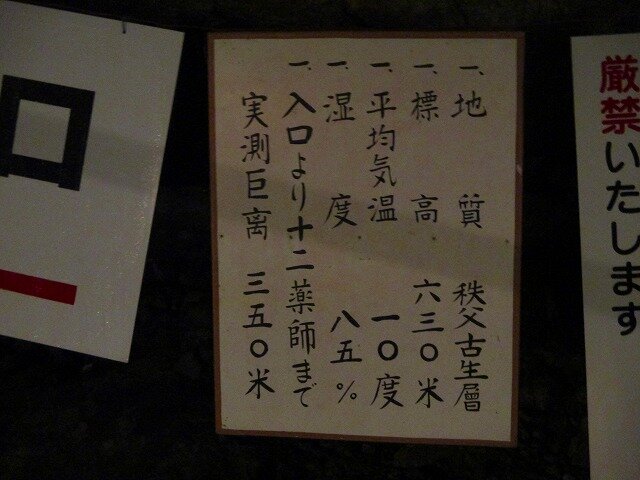 厳禁いたします
一、地質 秩父古生層
一、標高 六三〇米
一、平均気温 一〇度
一、湿度 八五%
一、入口より十二薬師まで
実測巨离 三五〇米
口